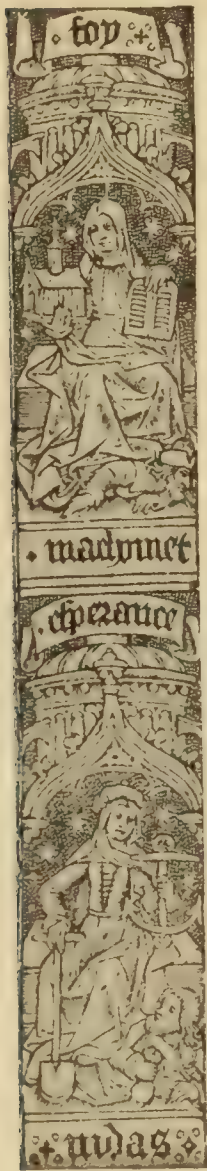 foy
madymmet
esperance
iudas